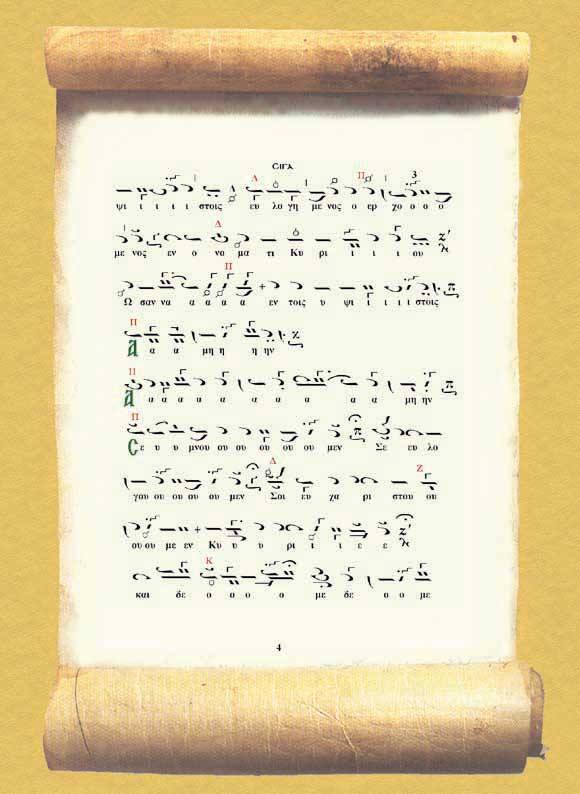 СІГΛ
Δ Π 3
ψι ι ι ι ι στοις ευ λο γη με νος ο ερ χο ο ο ο
Δ
με νος εν ο νο μα τι Κυ ρι ι ι ι ου
Π
Ω σαν να α α α α εν τοις υ ψι ι ι ι ι στοις
Π
Α α α μη η η ην
Π
Α α α α α α α α α α α μη ην
Π
Σε υ υ μνου ου ου ου ου ου μεν Σε ευ λο
Δ Ζ
γου ου ου ου ου μεν Σοι ευ χα ρι στου ου
ου ου με εν Κυ υ υ ρι ι ι ε ε
Κ
και δε ο ο ο ο με δε ο ο με
4